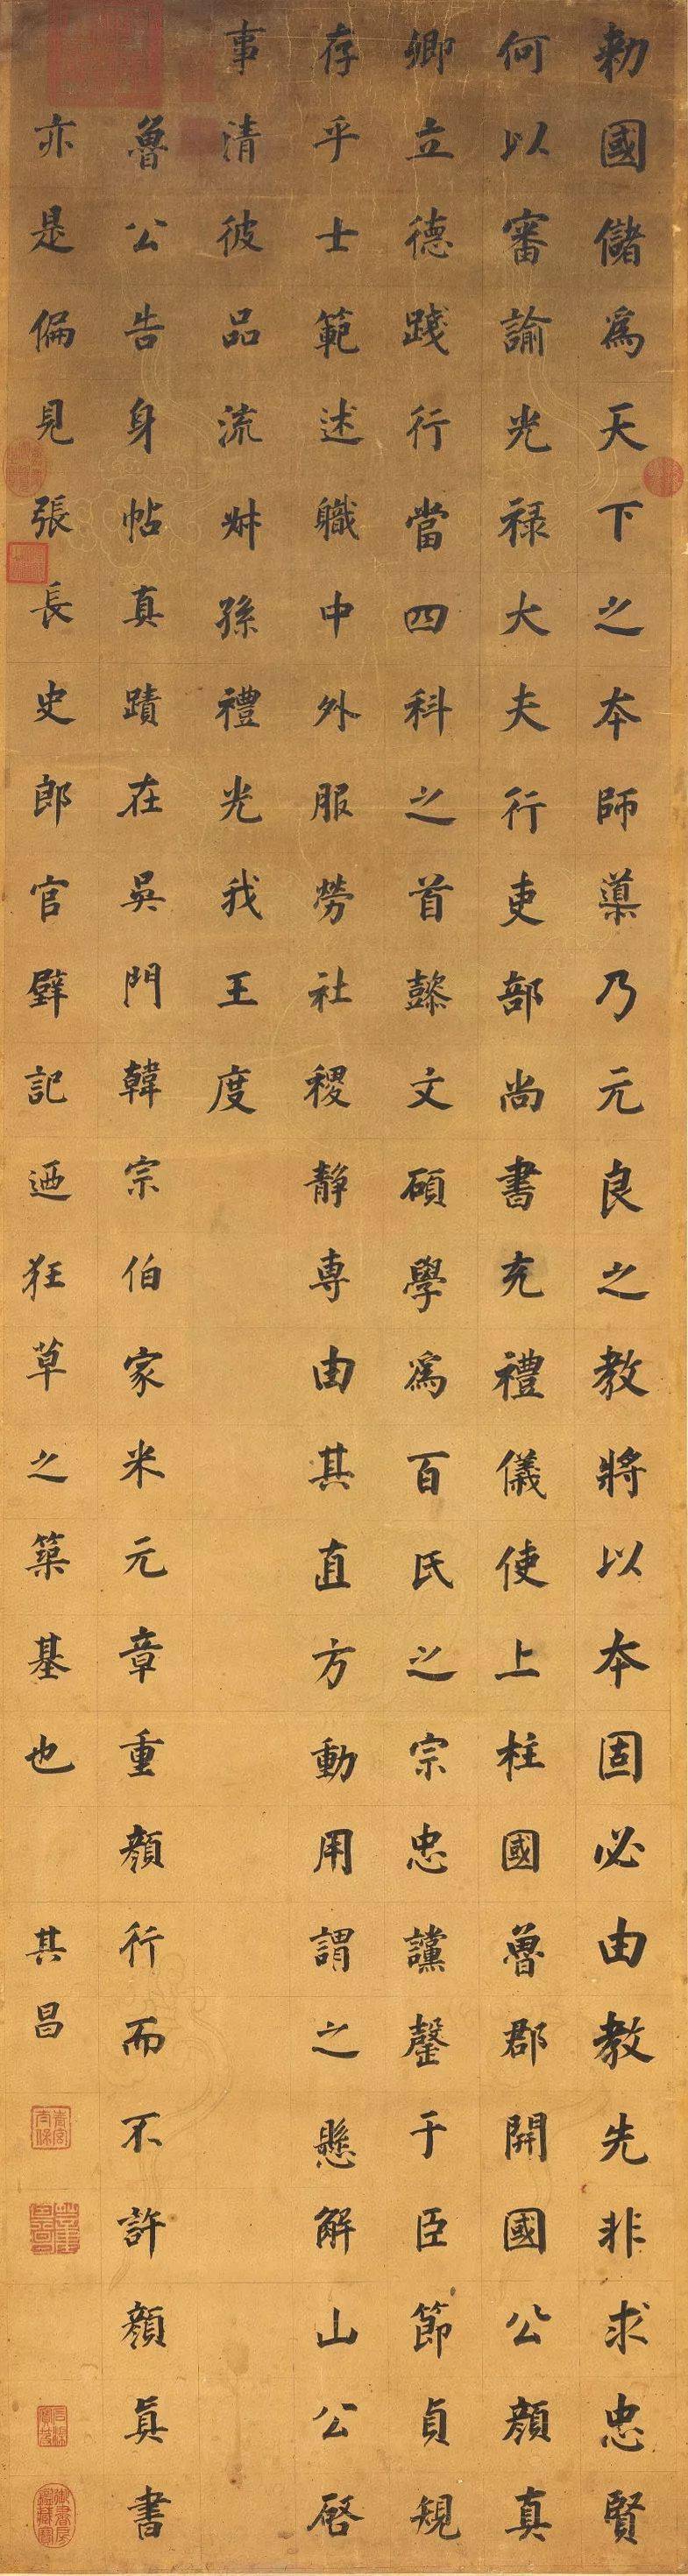 勅國儲爲天下之本師導乃元良之教將以本固必由教先非求忠賢
何以審諭光禄大夫行吏部尚書充禮儀使上柱國魯郡開國公顔真
卿立德踐行當四科之首懿文碩學爲百氏之宗忠讜罄于臣節貞規
存乎士範述職中外服勞社稷静専由其直方動用謂之懸解山公啓
事清彼品流叔孫禮光我王度
魯公告身帖真蹟在吳門韓宗伯家米元章重顔行而不許顔真書
亦是偏見張長史郎官壁記迺狂草之築基也 其昌